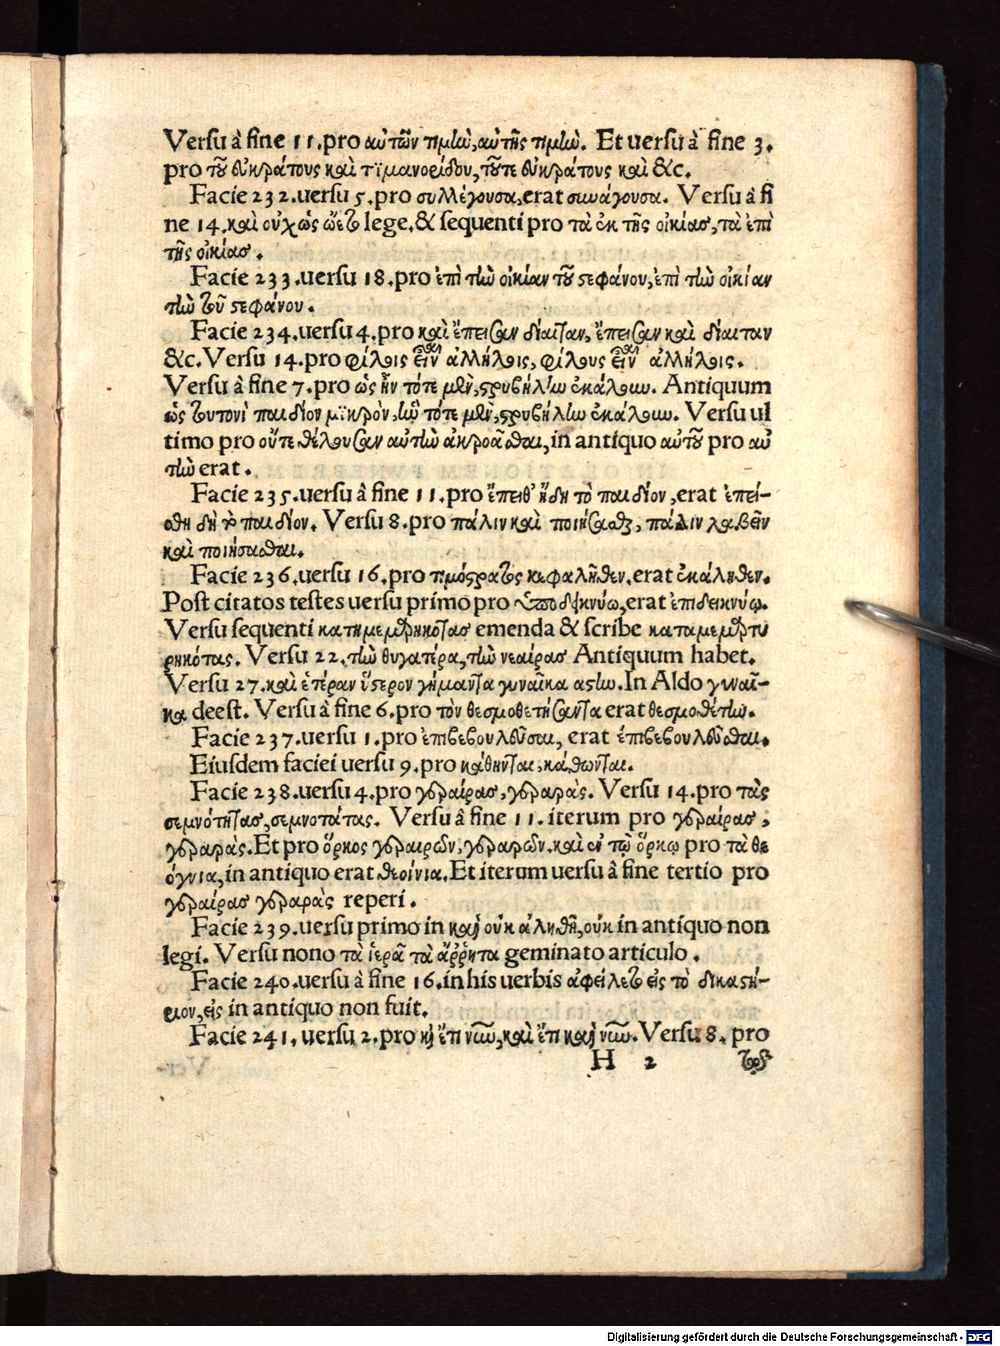 Versu à fine 11. pro αὐτῶν τιμὼ, αὐτῆς τιμὼ. Et uersu à fine 3.
pro τοῦ εὐκράτους καὶ τϊμανορίδου, τοῦτε εὐκράτους καὶ &c.
Facie 232. uersu 5. pro συλλέγουσα, erat συνάγουσα. Versu à fi
ne 14. καὶ οὐχὡς lege. & sequenti pro τὰ ἐκ τῆς οἰκίας, τὰ ἐπὶ
τῆς οἰκίας.
Facie 233. uersu 18. pro ἐπὶ τὴν οἰκίαν τοῦ στεφάνου, ἐπὶ τὴν οἰκίαν
τὴν τοῦ στεφάνου.
Facie 234. uersu 4. pro καὶ ἔπεισαν δίαιταν, ἔπεισαν καὶ δίαιταν
&c. Versu 14. pro φίλοις εἶναι ἀλλήλοις, φίλους εἶναι ἀλλήλοις.
Versu à fine 7. pro ὡς ἦν τότε μὲν, στρυβήλην ἐκάλουν. Antiquum
ὡς τουτονὶ παιδίον μϊκρὸν, ἣν τότε μὲν, στρυβήλην ἐκάλουν. Versu ul
timo pro οὔτε θέλουσαν αὐτὴν ἀκροᾶσθαι, in antiquo αὐτοῦ pro αὐ
τὴν erat.
Facie 235. uersu à fine 11. pro ἔπειθ' ἤδη τὸ παιδίον, erat ἐπεί-
σθη δὴ τὸ παιδίον. Versu 8. pro πάλιν καὶ ποιήσασθαι, πάλιν λαβεῖν
καὶ ποιήσασθαι.
Facie 236. uersu 16. pro τιμόστρατος κεφαλῆθεν, erat ἐκάληθεν.
Post citatos testes uersu primo pro ὑποδεικνύω, erat ἐπιδεικνύω.
Versu sequenti emenda & scribe καταμεμαρτυ
ρηκότας. Versu 22. τὴν θυγατέρα, τὴν νεαίρας Antiquum habet.
Versu 27. καὶ ἑτέραν ὕστερον γήμαντα γυναῖκα ἀστὴν. In Aldo γυναῖ-
κα deest. Versu à fine 6. pro τὸν θεσμοθετήσαντα erat θεσμοθέτην.
Facie 237. uersu 1. pro ἐπιβεβουλεῦσαι, erat ἐπιβεβουλεῦσθαι.
Eiusdem faciei uersu 9. pro κάθηνται, κάθωνται.
Facie 238. uersu 4. pro γεραίρας, γεραρὰς. Versu 14. pro τὰς
σεμνότητας, σεμνοτάτας. Versu à fine 11. iterum pro γεραίρας,
γεραρὰς. Et pro ὅρκος γεραιρῶν, γεραρῶν. καὶ ἐν τῷ ὅρκῳ pro τὰ θε
όγνια, in antiquo erat θεοίνια. Et iterum uersu à fine tertio pro
γεραίρας γεραρὰς reperi.
Facie 239. uersu primo in καὶ οὐκ ἀληθῆ, οὐκ in antiquo non
legi. Versu nono τὰ ἱερᾶ τὰ ἄῤῥητα geminato articulo.
Facie 240. uersu à fine 16. in his uerbis ἀφείλετο εἰς τὸ δικαστή-
ριον, εἰς in antiquo non fuit.
Facie 241. uersu 2. pro καὶ ἔτι νῶν, καὶ ἔτι καὶ νῶν. Versu 8. pro
H 2
Digitalisierung gefördert durch die Deutsche Forschungsgemeinschaft - DFG